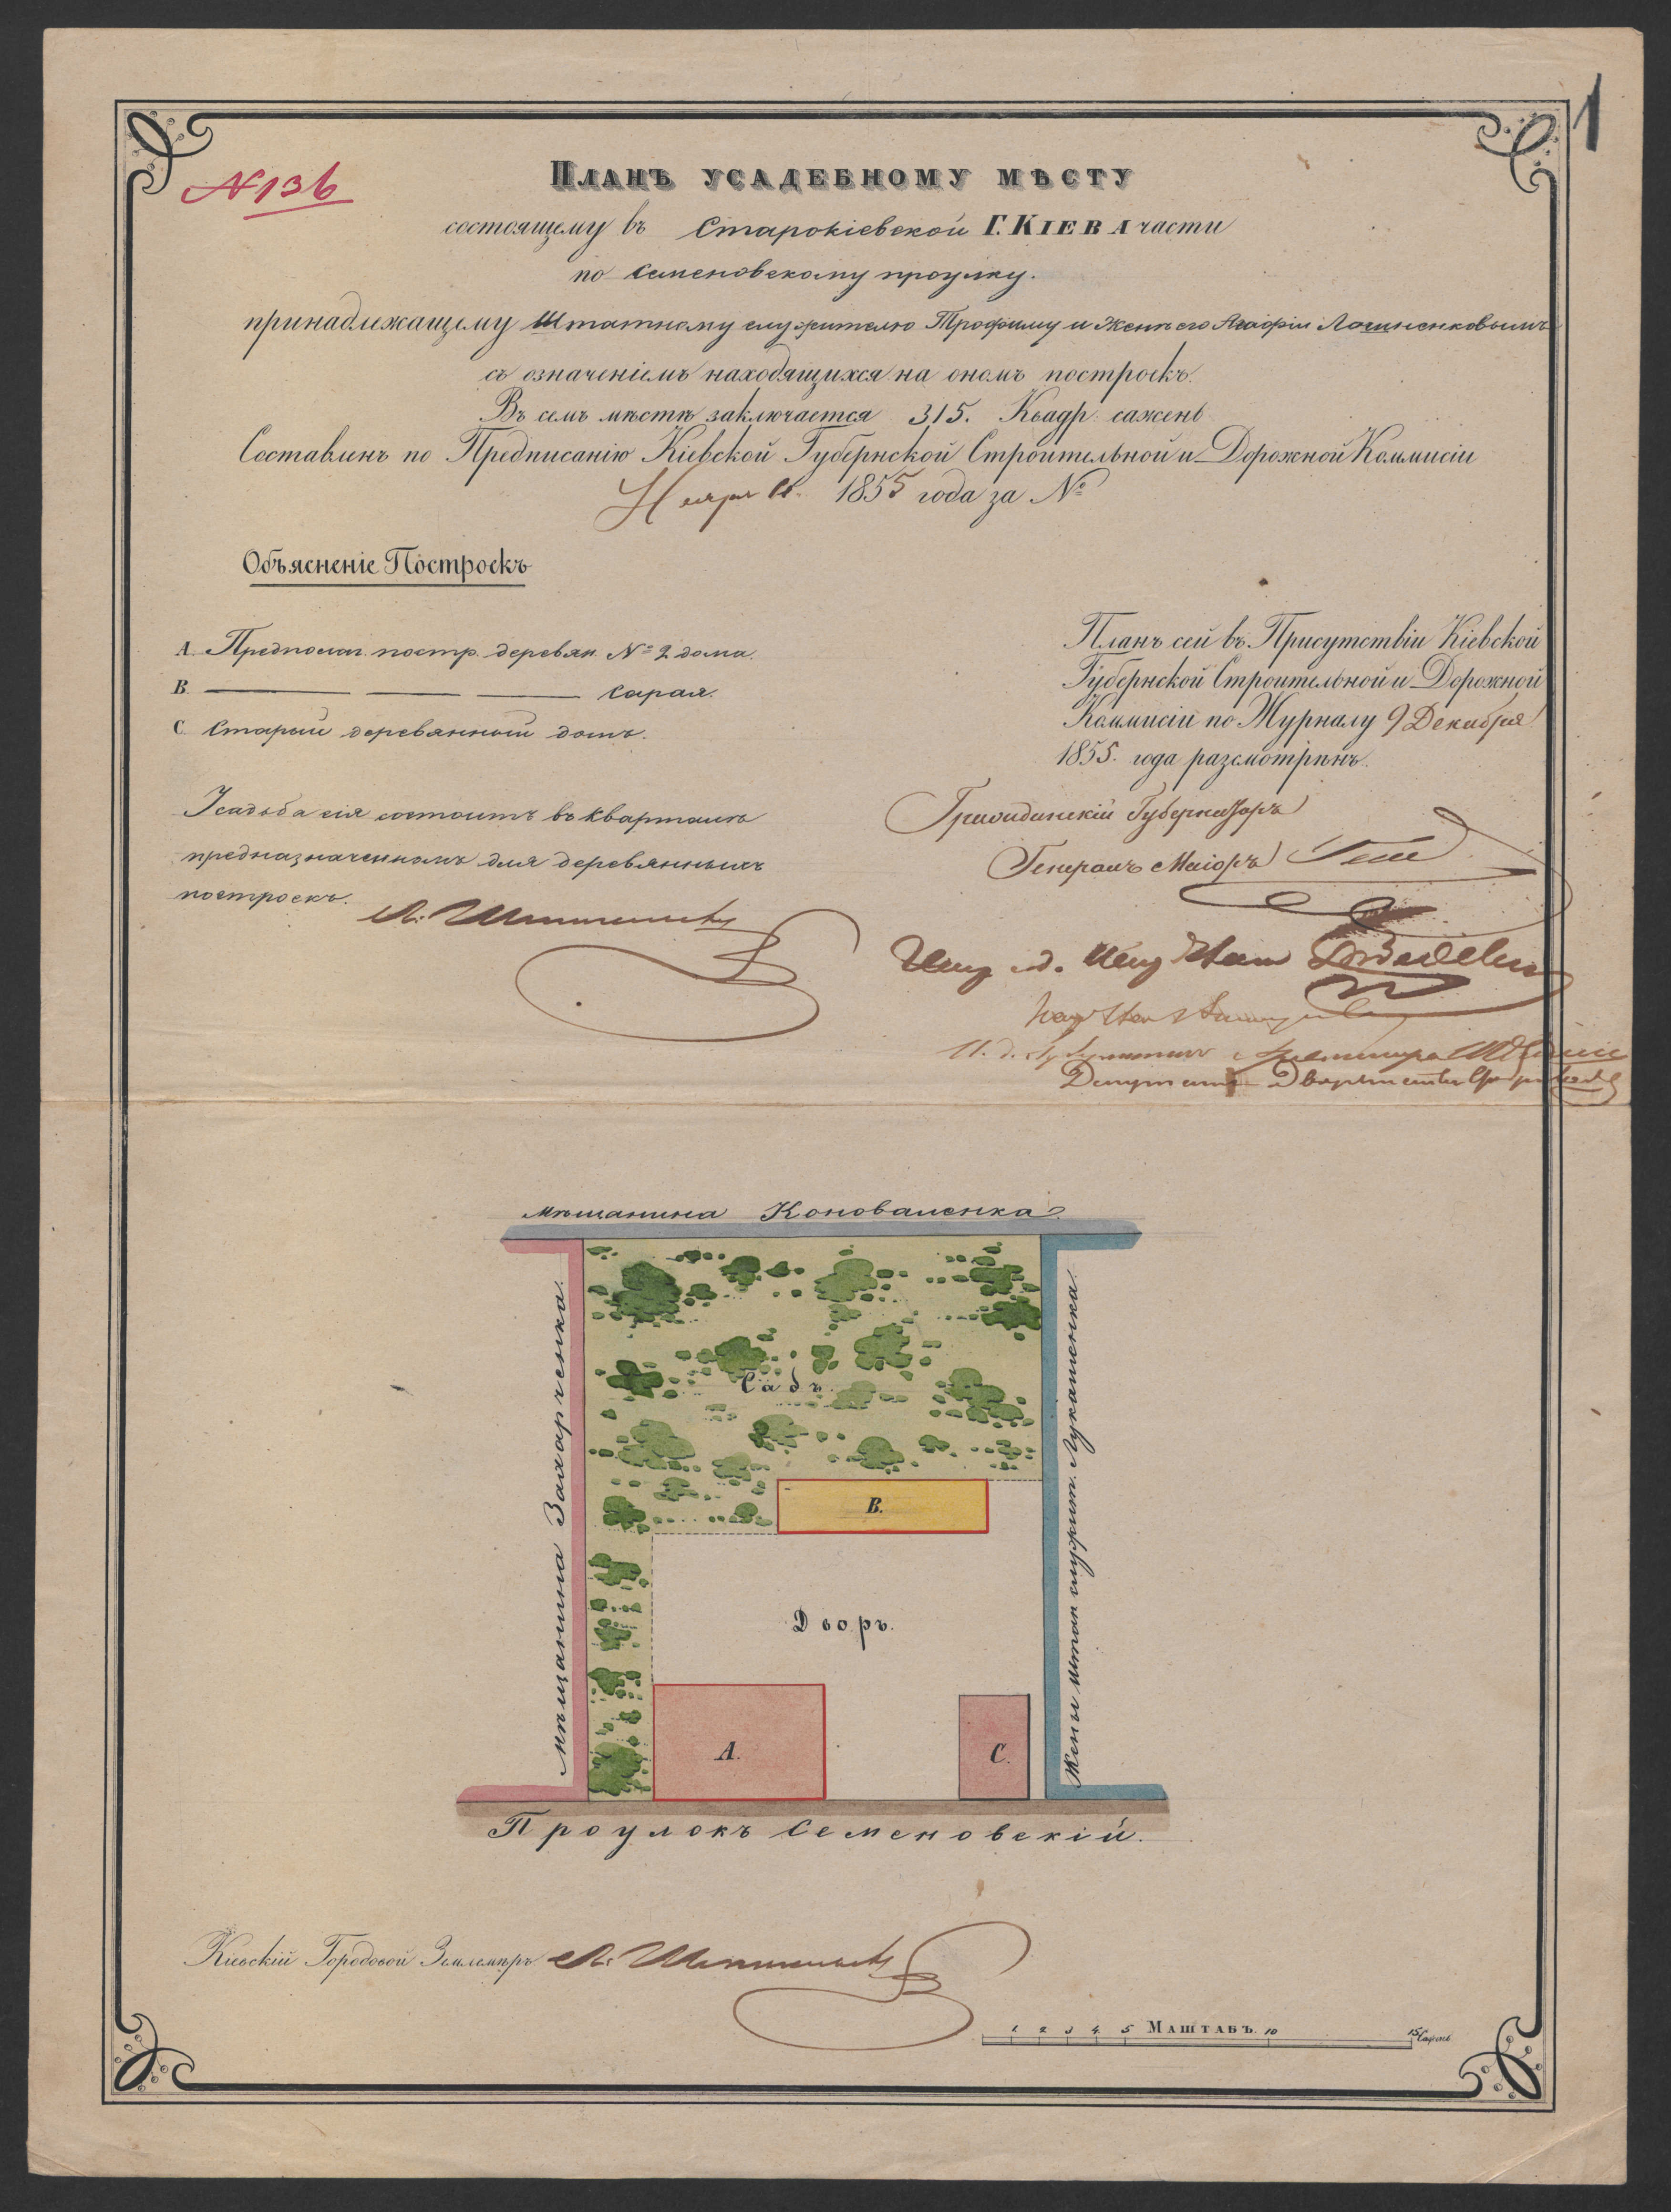 1
N 136
Планъ усадебному мѣсту
состоящему въ Старокіевской Г. Кіева части
по Семеновскому проулку.
принадлежащему Штатному служителю Трофиму и Женѣ его Агафіи
съ означеніемъ находящихся на ономъ построекъ.
Въ семъ мѣстѣ заключается 315. Квадр. сажень
Составленъ по Предписанію Кіевской Губернской Строительной и Дорожной Коммисіи
Ноября 1855 года за №
Объясненіе Построекъ
А. Предполаг. постр. деревян. № 2 дома.
В. ——— ——— ——— сарая.
С. Старый деревянный домъ.
Усадьба сія состоитъ въ кварталѣ
предназначенномъ для деревянныхъ
построекъ.
Планъ сей въ Присутствіи Кіевской
Губернской Строительной и Дорожной
Коммисіи по Журналу 9 Декабря
1855. года разсмотрѣнъ.
Гражданскій Губернаторъ
Генералъ Маіоръ Гессе
И. д. Губернскаго Архитектора
Депутатъ Дворянства
мѣщанина Коноваленка.
мѣщанина Захарченка.
Жены штат. служит. Лукашенка.
Садъ.
В.
Дворъ.
А.
С.
Проулокъ Семеновскій.
Кіевскій Городовой Землемѣръ
1 2 3 4 5 Масштабъ. 10 15 Сажень